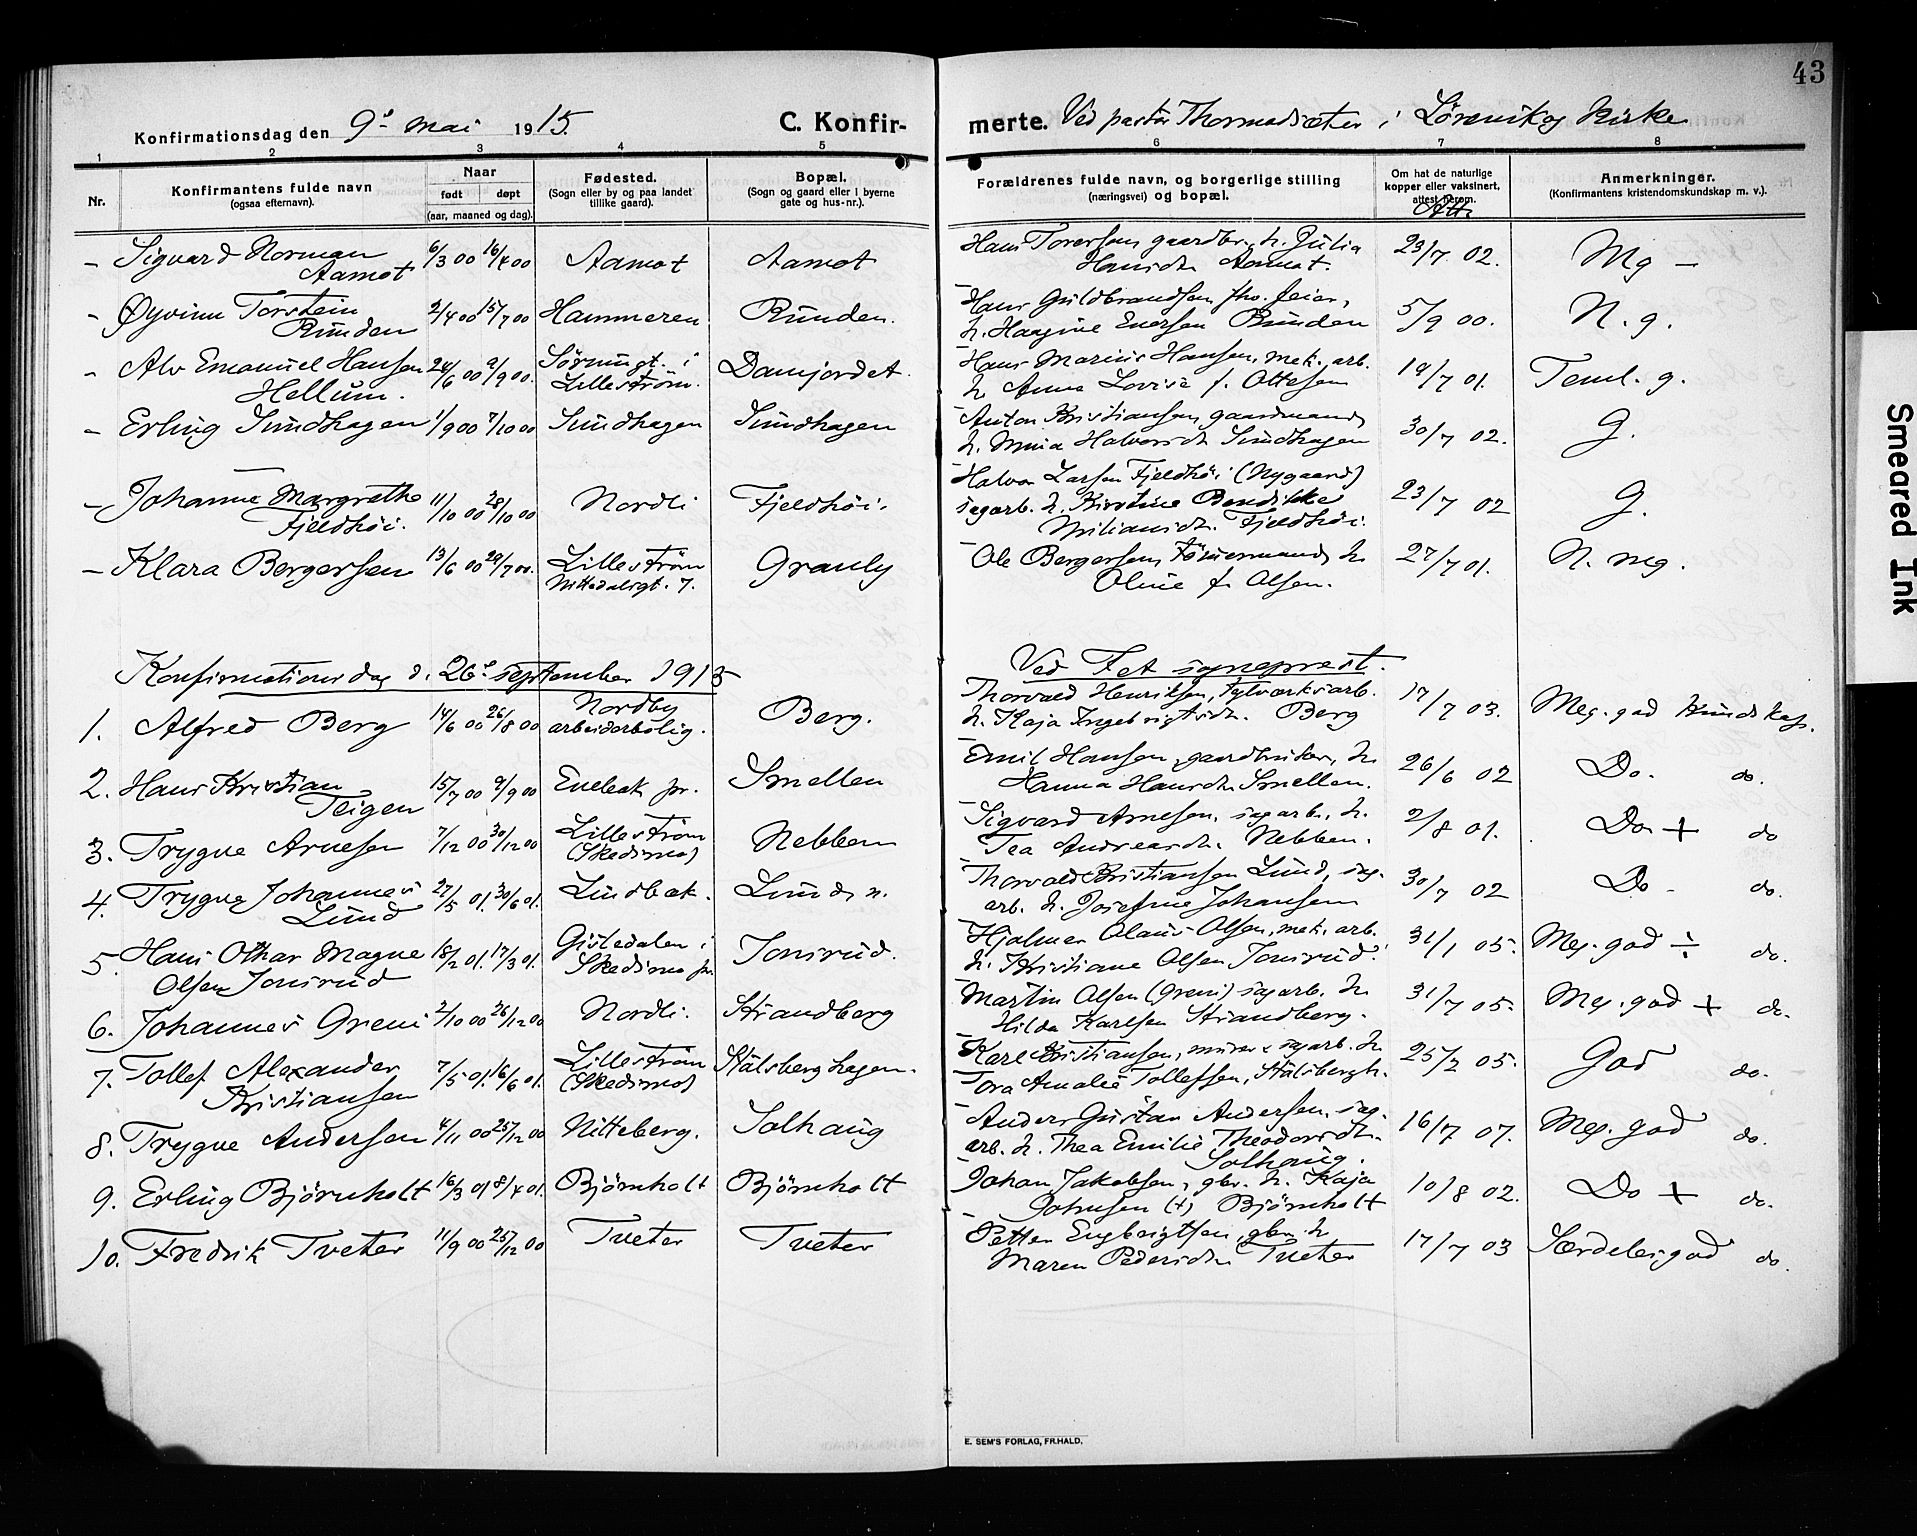 43
Konfirmationsdag den 9de mai 1915. C. Konfir-
merte. Ved pastor i Lørenskog kirke
1 2 3 4 5 6 7 8
Nr.
Konfirmantens fulde navn
(ogsaa efternavn).
Naar
født døpt
(aar, maaned og dag).
Fødested.
(Sogn eller by og paa landet
tillike gaard).
Bopæl.
(Sogn og gaard eller i byerne
gate og hus-nr.).
Forældrenes fulde navn, og borgerlige stilling
(næringsvei) og bopæl.
Om hat de naturlige
kopper eller vaksinert,
attest herom.
Att.
Anmerkninger.
(Konfirmantens kristendomskundskap m. v.).
- Sigvard Norman
Aamot
6/3 00 16/4 00 Aamot Aamot
Hans Torersen gaardbr. h. Julia
Hansdtr Aamot.
23/7 02. Mg -
- Øyvinn Torstein
Runden
2/4 00 15/7 00 Hammeren Runden.
Hans Guldbrandsen fho. feier,
h. Haagine Enersen Runden
5/9 00. N. g.
- Alv Emanuel Hansen
Hellum.
24/6 00 2/9 00.
i
Lillestrøm.
Damjordet.
Hans Marius Hansen, mek. arb.
h. Anna Lovise f. Ottesen
19/7 01. Teml. g.
- Erling Sundhagen 1/9 00 7/10 00 Sundhagen Sundhagen
Anton Kristiansen, gaardmand,
h. Mina Halvorsdtr Sundhagen
30/7 02. G.
- Johanne Margrethe
Fjeldhøi.
11/10 00 28/10 00 Nordli Fjeldhøi.
Halvor Larsen Fjeldhøi (Nygaard)
sagarb. h. Kirstine Bendikke
Fjeldhøi.
23/7 02 G.
- Klara Bergersen 13/6 00 29/7 00.
Lillestrøm
Nittedalsgt. 7.
Granly
Ole Bergersen, Tømmermand, h.
Oline f. Olsen.
27/7 01. N. mg.
Konfirmationsdag d. 26de september 1915
Ved Fet sogneprest.
1. Alfred Berg 14/6 00 26/8 00
Nordby
arbeiderbolig.
Berg.
Thorvald Henriksen, Tylverksarb.
h. Kaja Ingebrigtsdtr. Berg
17/7 03. Meg. god kundskap.
2. Hans Kristian
Teigen
15/7 00 9/9 00 Enebak pr. Smellen
Emil Hansen, gaardbruker, h.
Hanna Hansdtr Smellen.
26/6 02 Do. do.
3. Trygve Arnesen 7/12 00 30/12 00
Lillestrøm
(Skedsmo)
Nebben
Sigvard Arnesen, sagarb., h.
Tea Andreasdtr. Nebben.
2/8 01. Do + do
4. Trygve Johannes
Lund
27/5 01. 30/6 01. Lundbæk. Lund n.
Thorvald Kristiansen Lund, sag-
arb. h. Josefine Johansen
30/7 02 Do - do.
5. Hans Othar Magne
Olsen Jonsrud
18/2 01. 17/3 01.
Gisledalen i
Skedsmo pr.
Jonsrud.
Hjalmar Olaus Olsen, mek. arb.
h. Kristiane Olsen Jonsrud.
31/1 05. Meg. god ÷ do.
6. Johannes Greni 2/10 00 26/12 00 Nordli. Strandberg
Martin Olsen (Greni) sagarb. h.
Hilda Karlsen Strandberg.
31/7 05. Meg. god + do.
7. Tollef Alexander
Kristiansen
7/5 01. 16/6 01.
Lillestrøm
(Skedsmo)
Stålsberghagen.
Karl Kristiansen, murer & sagarb. h.
Tora Amalie Tollefsen, Stålsbergh.
25/7 05. God do.
8. Trygve Andersen 4/11 00 25/12 00 Nitteberg. Solhaug
Anders Gustav Andersen, sag-
arb. h. Thea Emilie Theodorsdtr.
Solhaug.
16/7 07. Meg. god do.
9. Erling Bjørnholt 16/3 01 8/4 01. Bjørnholt Bjørnholt
Johan Jakobsen, gbr. h. Kaja
Johnsen (†) Bjørnholt
10/8 02. Do + do.
10. Fredrik Tveter 11/9 00 25/12 00 Tveter Tveter
Petter Engbrigtsen, gbr. h.
Maren Pedersdtr Tveter
17/7 03 Særdeles god do.
E. SEM'S FORLAG, FR.HALD.
Smeared Ink